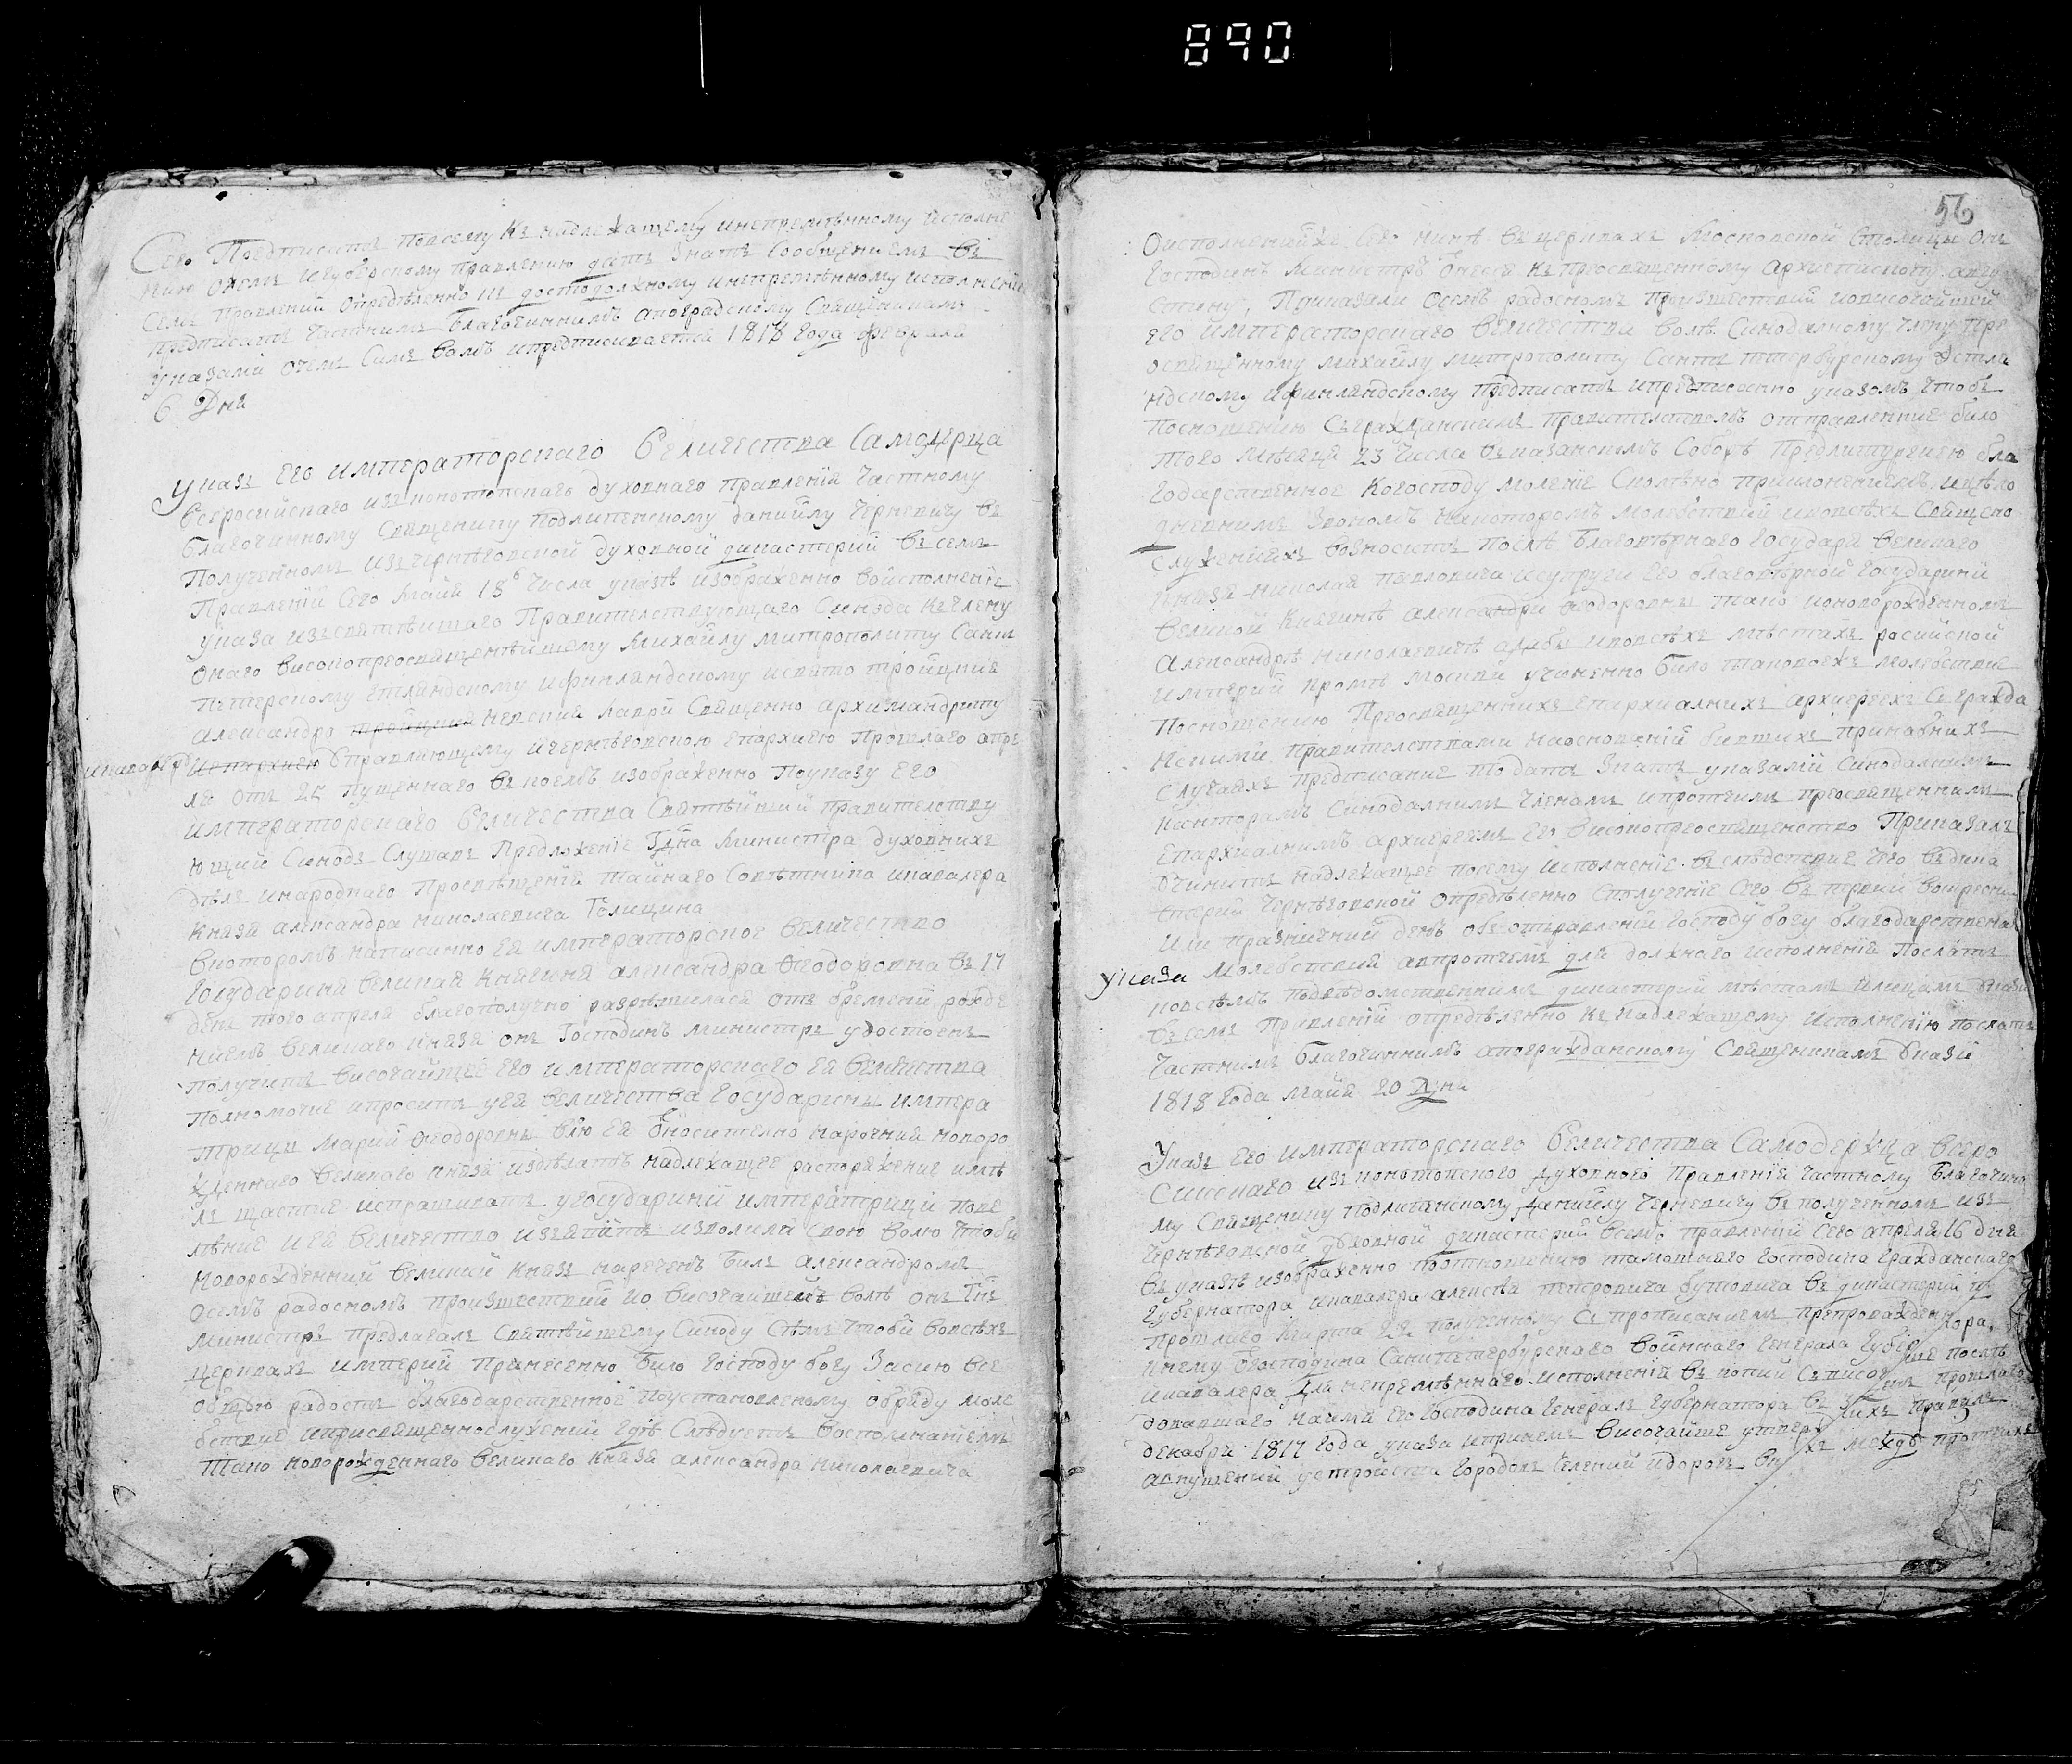 890
Сего Предписать посему къ надлежащему инепремѣнному исполне
нию очемъ игуберскому правлению дать знать сообщениемъ въ
семъ правлении опредѣленно къ достодолжному инепремѣнному исполнению
предписать частнимъ благочиннимъ апоградскому священикамъ
указами очемъ симъ вамъ ипредписивается 1818 года февраля
6 Дня
Указъ Его императорскаго Величества Самодерца
всеросийскаго изъ конотопскаго духовнаго правления частному
благочинному священику подлипенскому даниилу Черневичу въ
полученномъ изъ чернѣговской духовной дикастерии въ семъ
правлении сего мая 18 числа указѣ изображенно воисполнение
указа изъ святѣишаго правителствующаго Синода къ члену
онаго високопреосвященѣйшему михаилу митрополиту санкт
петерскому естляндскому ифинляндскому исвято тройцкия
александро невския лаври священно архимандриту
икавалеру управляющему ичернѣговскою епархиею прошлаго апре
ля отъ 22 пущеннаго въ коемъ изображенно поуказу ЕГО
императорскаго величества святѣйший правителству
ющий Синодъ слушавъ предложение Гдна министра духовнихъ
дѣлъ инароднаго просвѣщения тайнаго совѣтника икавалера
князя александра николаевича Голицина
вкоторомъ написанно ея императорское величество
государиня великая княгиня александра феодоровна въ 17
день того апреля благополучно разрѣшилася отъ бремени рожде
ниемъ великаго князя онъ господинъ министръ удостоенъ
получить височайшее его императорскаго ея величества
полномочие ипросить уея величества государини импера
трици марии феодоровни
жденнаго великаго князя издѣлать надлежащее распоряжение имѣ
лъ щастие испрашивать угосударини императрици пове
лѣние иея величество изявить изволили свою волю чтоби
новорожденний великий князь нареченъ билъ александромъ
осемъ радосномъ произшествии ио височайшей волѣ онъ Гнъ
министръ предлагалъ святѣйшему синоду стѣмъ чтоби вовсѣхъ
церквахъ империи принесенно било господу богу засию все
общую радость благодарственное поустановленому обряду моле
бствие иприсвященнослужении гдѣ слѣдуетъ воспоминаниемъ
тако новорожденнаго великаго князя александра николаевича
56
Оисполнении же сего нинѣ въ церквахъ московской столици онъ
господинъ министръ отнесся къ преосвященному архиепископу авгу
стину, Приказали осемъ радосномъ произшествии иовисочайшей
его императорскаго величества волѣ синодалному члену пре
освященному михаилу митрополиту санктъ петербурскому эстля
ндскому ифинляндскому предписать ипредписанно указомъ чтобъ
посношению съ гражданскимъ правителствомъ отправленние било
того мѣсяця 23 числа въ казанскомъ соборѣ предлитургиею бла
годарственное ко господу моление сколѣно приклонениемъ ицѣло
дневнимъ звономъ накоторомъ молебствии иповсѣхъ священо
служенияхъ возносить послѣ благовѣрнаго государя великаго
князя николая павловича исупруги его благовѣрной государини
великой княгинѣ александри феодоровни тако иноворожденномъ
александрѣ николаевичѣ адаби иповсѣхъ мѣстахъ росийской
империи кромѣ москви учиненно било таковоежъ молебствие
посношению преосвященнихъ епархиалнихъ архиереевъ съ гражда
нскими правителствами наосновании бившихъ приподобнихъ
случаяхъ предписание то дать знать указами синодалнимъ
канторамъ синодалнимъ членамъ ипротчимъ преосвященнимъ
епархиалнимъ архиереямъ его високопреосвященство приказалъ
учинить надлежащее посему исполнение въ слѣдствие чего въ дика
стерии чернѣговской опредѣленно сполучение сего въ первий воскресни
или праздничний день объ отправлении господу богу благодарственна
указы молебствий апротчемъ для должнаго исполнения послать
повсѣмъ подвѣдомственнимъ дикастерии мѣстамъ илицамъ указы
въ семъ правлении опредѣленно къ надлежащему исполнению послать
частнимъ благочиннимъ апогражданскому священикамъ указы
1818 года мая 20 Дня
Указъ Его императорскаго величества Самодержца всеро
сийскаго изъ конотопского духовного правления частному благочинно
му священику подлипенскому даниилу черневичу въ полученномъ изъ
чернѣговской духовной дикастерии всемъ правлении сего апреля 16 дня
въ указѣ изображенно поотношению тамошнего господина гражданскаго
губернатора икавалера алексѣя петровича бутовича въ дикастерии
прошлаго марта 22 полученному съ прописаниемъ препровожденн
кнему господина санкпетербурскаго военнаго генерала губер тора,
икавалера для непремѣннаго исполнения въ копии съ писо послѣ
довавшаго наимя его господина генерала губернатора въ прошлаго
декабря 1817 года указа ипринемъ височайше утвер ихъ правилъ
авпущении устройства городовъ селений идорогъ между протчихъ